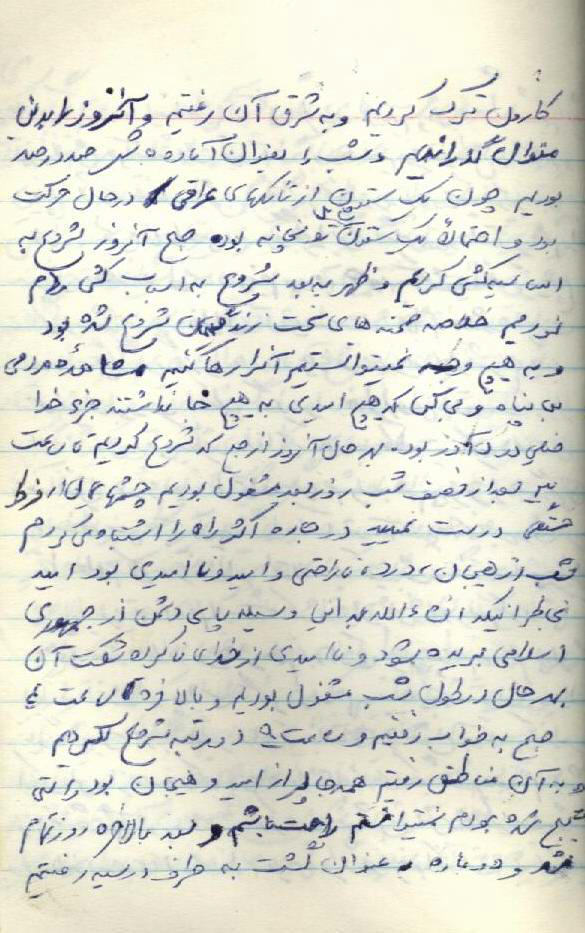 کارون ترک کردیم و به شرق آن رفتیم و آنروز را بدین
منوال گذراندیم و شب را بعنوان آماده باش صددرصد
بودیم چون یک ستون از تانکهای عراقی در حال حرکت
بود و احتمالاً یک ستون توپخانه بود. صبح آنروز شروع به
اسباب کشی کردیم و ظهر به بعد شروع به اسباب کشی مردم
نمودیم خلاصه صحنه های سخت زندگیمان شروع شده بود
و به هیچ وجه نمیتوانستیم آنرا رها کنیم مشاهده مردمی
بی پناه و بی کس که هیچ امیدی به هیچ جا نداشتند جزء خدا
خیلی دردآور بود. بهرحال آنروز از صبح که شروع کردیم تا ساعت
بعد از نصف شب روز بعد مشغول بودیم چشمهایمان از فرط
خستگی درست نمیدید در جاده اکثر راه را اشتباه می کردم
شب از هیجان، درد، ناراحتی و امید و ناامیدی بود امید
بخاطر اینکه انشاءالله بدین وسیله پای دشمن از جمهوری
اسلامی بریده بشود و ناامیدی از خدای ناکرده شکست آن
بهرحال در طول شب مشغول بودیم و بالاخره ساعت ۴
صبح به خواب رفتیم و ساعت ۹ دو مرتبه شروع کردیم
و به آن مناطق رفتم همه جا پر از امید و هیجان بود راستی
گیج شده بودم نمیتوانستم راحت باشم و بعد بالاخره روز تمام
شد و دوباره به عنوان گشت به طرف رفتیم